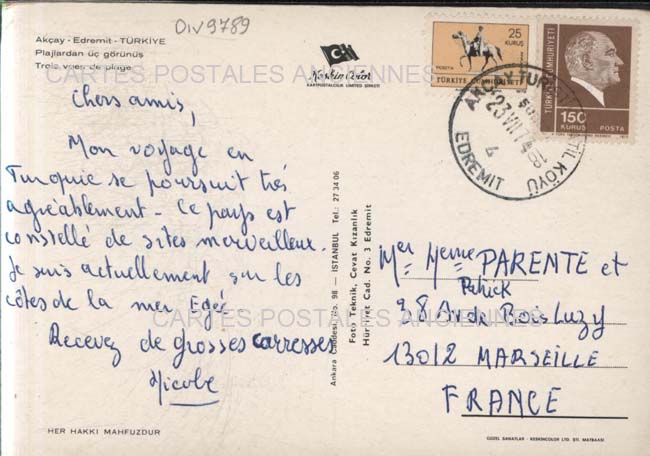 OIV9789
Akçay - Edremit - TÜRKİYE
Plajlardan üç görünüş
Trois vues de plage
CARTES POSTALES ANCIENNES
Keskin Color
KARTPOSTALCILIK LIMITED ŞİRKETİ
25
KURUŞ
POSTA
TÜRKİYE CUMHURİYETİ
TÜRKİYE CUMHURİYETİ
150
KURUŞ
POSTA
23 VII 74
EDREMIT
Chers amis,
Mon voyage en
Turquie se poursuit très
agréablement - Ce pays est
constellé de sites merveilleux.
Je suis actuellement sur les
côtes de la mer Egée
Recevez de grosses carresses
Nicole
HER HAKKI MAHFUZDUR
Ankara Caddesi, No. 98 — İSTANBUL Tel.: 27 34 06
Foto Teknik, Cevat Kızanlık
Hürriyet Cad. No. 3 Edremit
PARENTE et
Patrick
Bois Luzy
CARTES POSTALES ANCIENNES
13012 MARSEILLE
FRANCE
GÜZEL SANATLAR - KESKİNCOLOR LTD. ŞTİ. MATBAASI